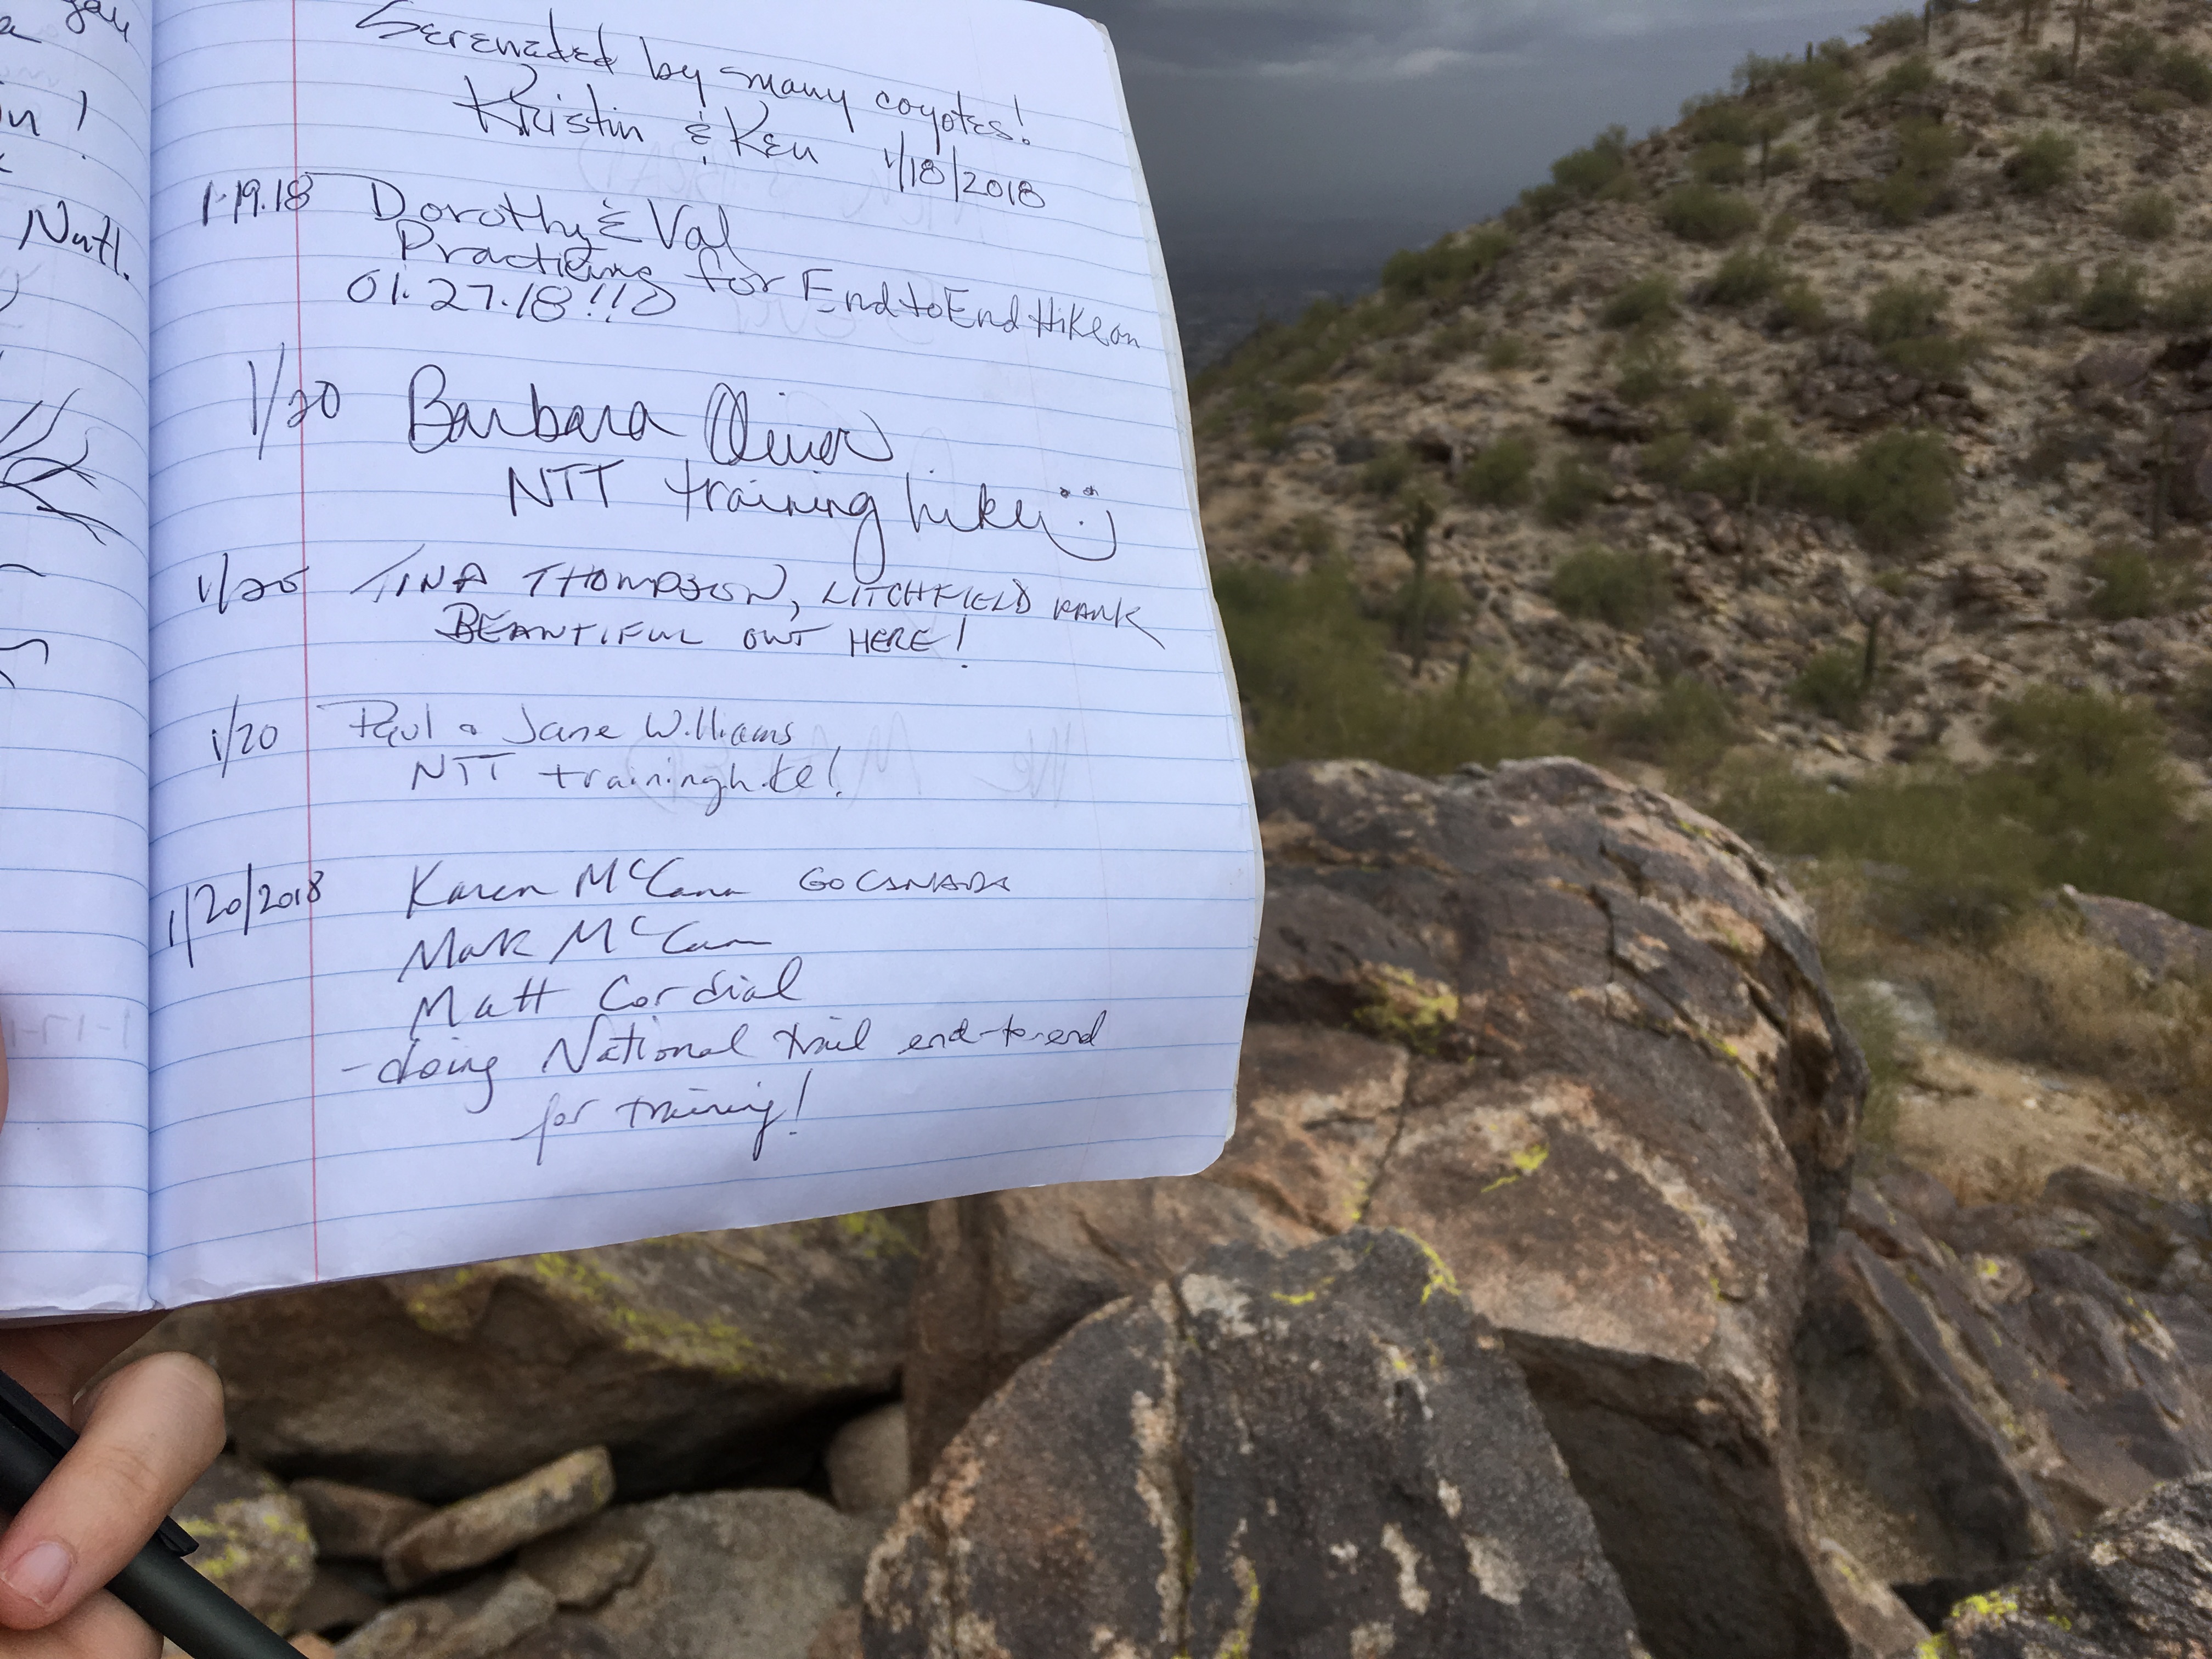 gau
a
in!
Natl.
Serenaded by many coyotes!
Kristin & Ken 1/18/2018
1.19.18 Dorothy & Val
Practicing for End to End Hike on
01.27.18!!!
1/20 Barbara Oliver
NTT training hike
1/20 TINA THOMPSON, LITCHFIELD PARK
BEAUTIFUL OUT HERE!
1/20 Paul & Jane Williams
NTT training hike!
1/20/2018 Karen McCann GO CANADA
Mark McCann
Matt Cordial
- doing National trail end-to-end
for training!